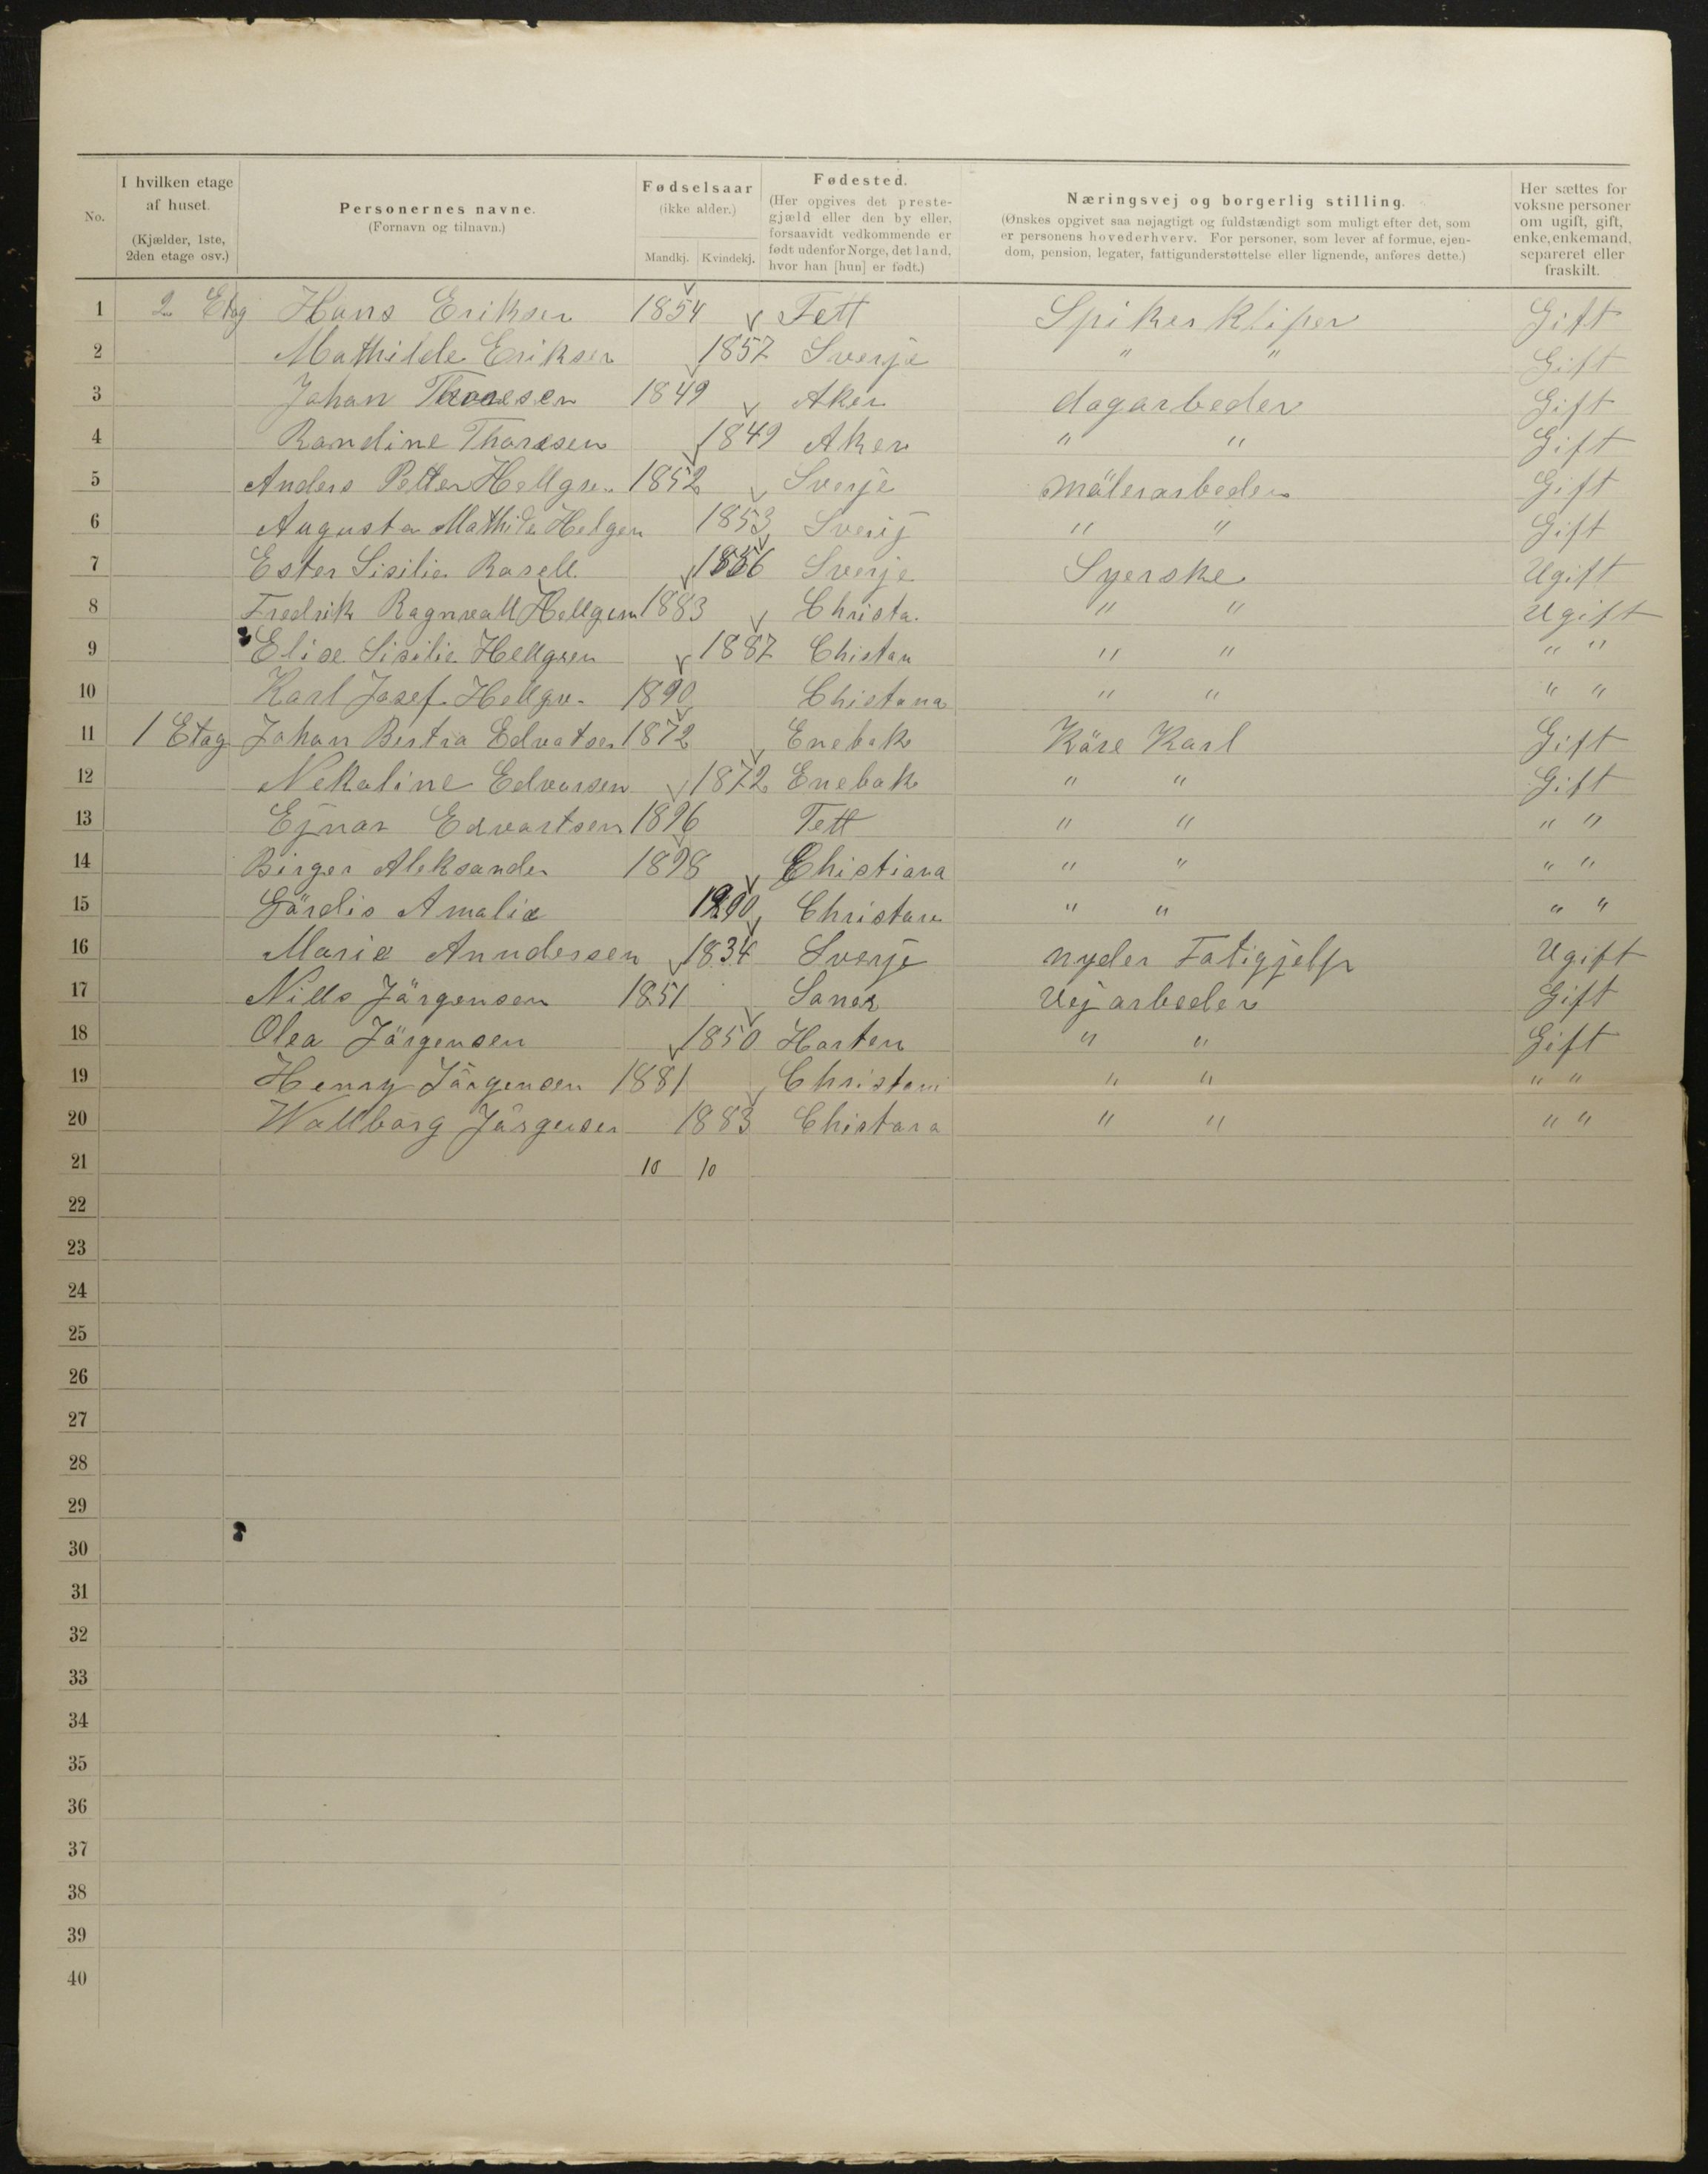 No.
I hvilken etage af huset. (Kjælder, 1ste, 2den etage osv.)
Personernes navne. (Fornavn og tilnavn.)
Fødselsaar (ikke alder.) Mandkj. Kvindekj.
Fødested. (Her opgives det prestegjæld eller den by eller, forsaavidt vedkommende er født udenfor Norge, det land, hvor han [hun] er født.)
Næringsvej og borgerlig stilling. (Ønskes opgivet saa nøjagtigt og fuldstændigt som muligt efter det, som er personens hovederhverv. For personer, som lever af formue, ejendom, pension, legater, fattigunderstøttelse eller lignende, anføres dette.)
Her sættes for voksne personer om ugift, gift, enke, enkemand, separeret eller fraskilt.
1 2 Etag Hans Eriksen 1854 Fett Spiker kliper Gift
2 Mathilde Eriksen 1857 Sverje " " Gift
3 Johan Thoresen 1849 Aker dagarbeder Gift
4 Randine Thoresen 1849 Aker " " Gift
5 Anders Petter Hellgren 1852 Sverje mälerarbeder Gift
6 Augusta Mathilde Helgen 1853 Sverij " " Gift
7 Ester Sisilie Rasell 1856 Sverje Syerske Ugift
8 Fredrik Ragnvall Hellgren 1883 Christa. " " Ugift
9 Elise Sisilie Hellgren 1887 Chistan " " " "
10 Karl Josef Hellgr. 1890 Chistana " " " "
11 1 Etag Johan Bertra Edvatsen 1872 Enebak Käre Karl Gift
12 Nekaline Edvarsen 1872 Enebak " " Gift
13 Ejnar Edvartsen 1896 Fett " " " "
14 Birger Aleksander 1898 Chistiana " " " "
15 Gärdis Amalie 1900 Christan " " " "
16 Marie Anndersen 1834 Sverje nyder Fatigjelp Ugift
17 Nills Järgensen 1851 Saner Vejarbeder Gift
18 Olea Järgensen 1850 Horten " " Gift
19 Henry Järgensen 1881 Christani " " " "
20 Wallborg Järgensen 1883 Chistana " " " "
21 10 10
22
23
24
25
26
27
28
29
30
31
32
33
34
35
36
37
38
39
40